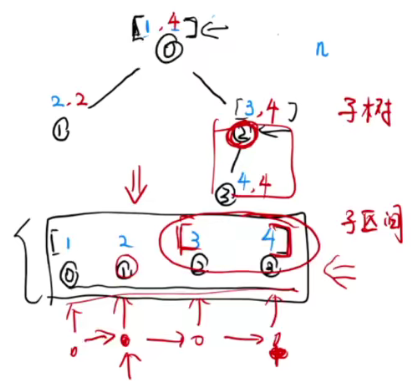 [1,4]
⓪
n
2,2
[3,4]
子树
①
②
4,4
③
子区间
[1 2 [3 4]
⓪ ① ② ③
0 → 0 → 0 →